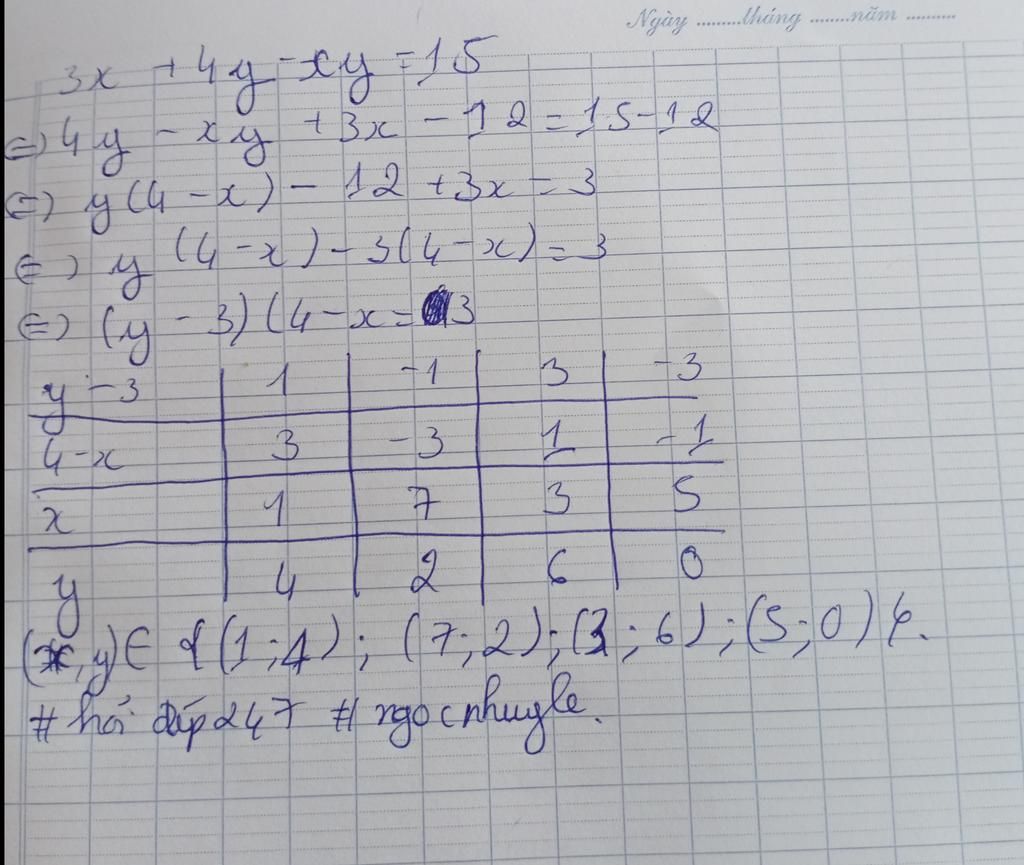 Ngày ..........tháng ........năm ..........
3x + 4y - xy = 15
⇔ 4y - xy + 3x - 12 = 15 - 12
⇔ y(4 - x) - 12 + 3x = 3
⇔ y (4 - x) - 3(4 - x) = 3
⇔ (y - 3) (4 - x = 3
y - 3 | 1 | -1 | 3 | -3
4 - x | 3 | -3 | 1 | -1
x | 1 | 7 | 3 | 5
y | 4 | 2 | 6 | 0
(x, y) ∈ {(1; 4); (7; 2); (3; 6); (5; 0)}.
# hỏi đáp 247 # ngocnhuyle.